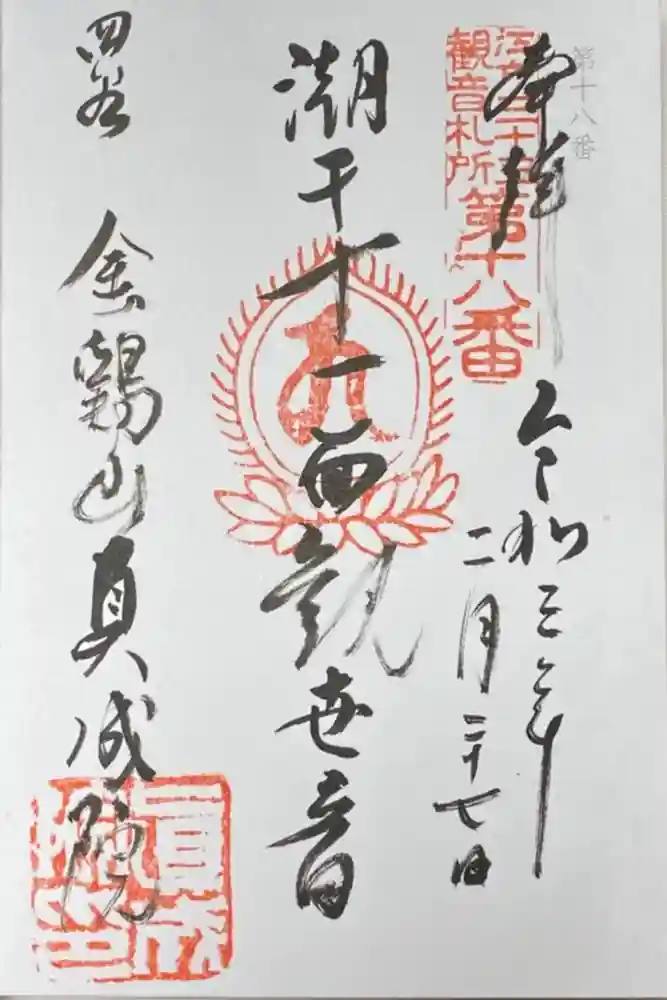 第十八番
奉拝
江戸三十三
観音札所
第十八番
令和三年
二月二十七日
潮干十一面観世音
四谷
金鶏山真成院